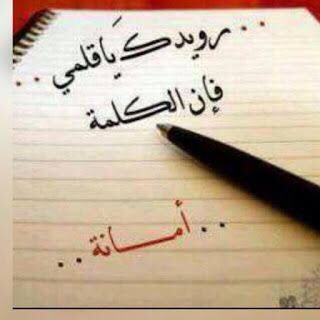 .. رويدك يَا قلمي ..
فإن الكلمة
.. أمـــانة ..